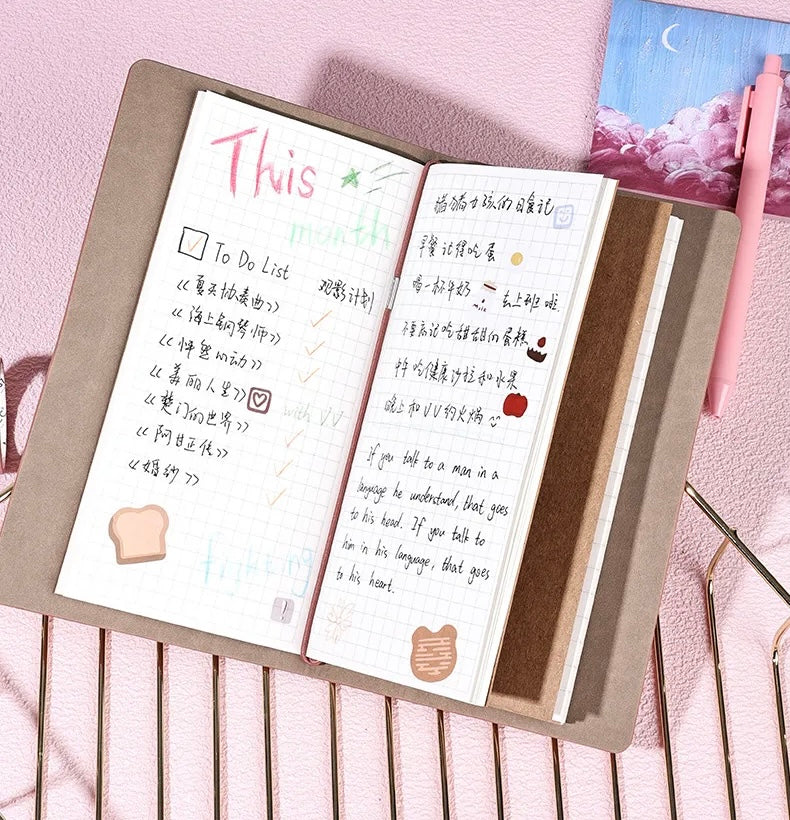 This
month
To Do List
观影计划
《夏天协奏曲》
《海上钢琴师》
《怦然心动》
《美丽人生》
with VV
《楚门的世界》
《阿甘正传》
《婚纱》
fighting
!
的日食记
早餐记得吃蛋
喝一杯牛奶 milk 去上班啦.
不要忘记吃甜甜的蛋糕
中午吃健康沙拉和水果
晚上和VV约火锅
If you talk to a man in a
language he understand, that goes
to his head. If you talk to
him in his language, that goes
to his heart.